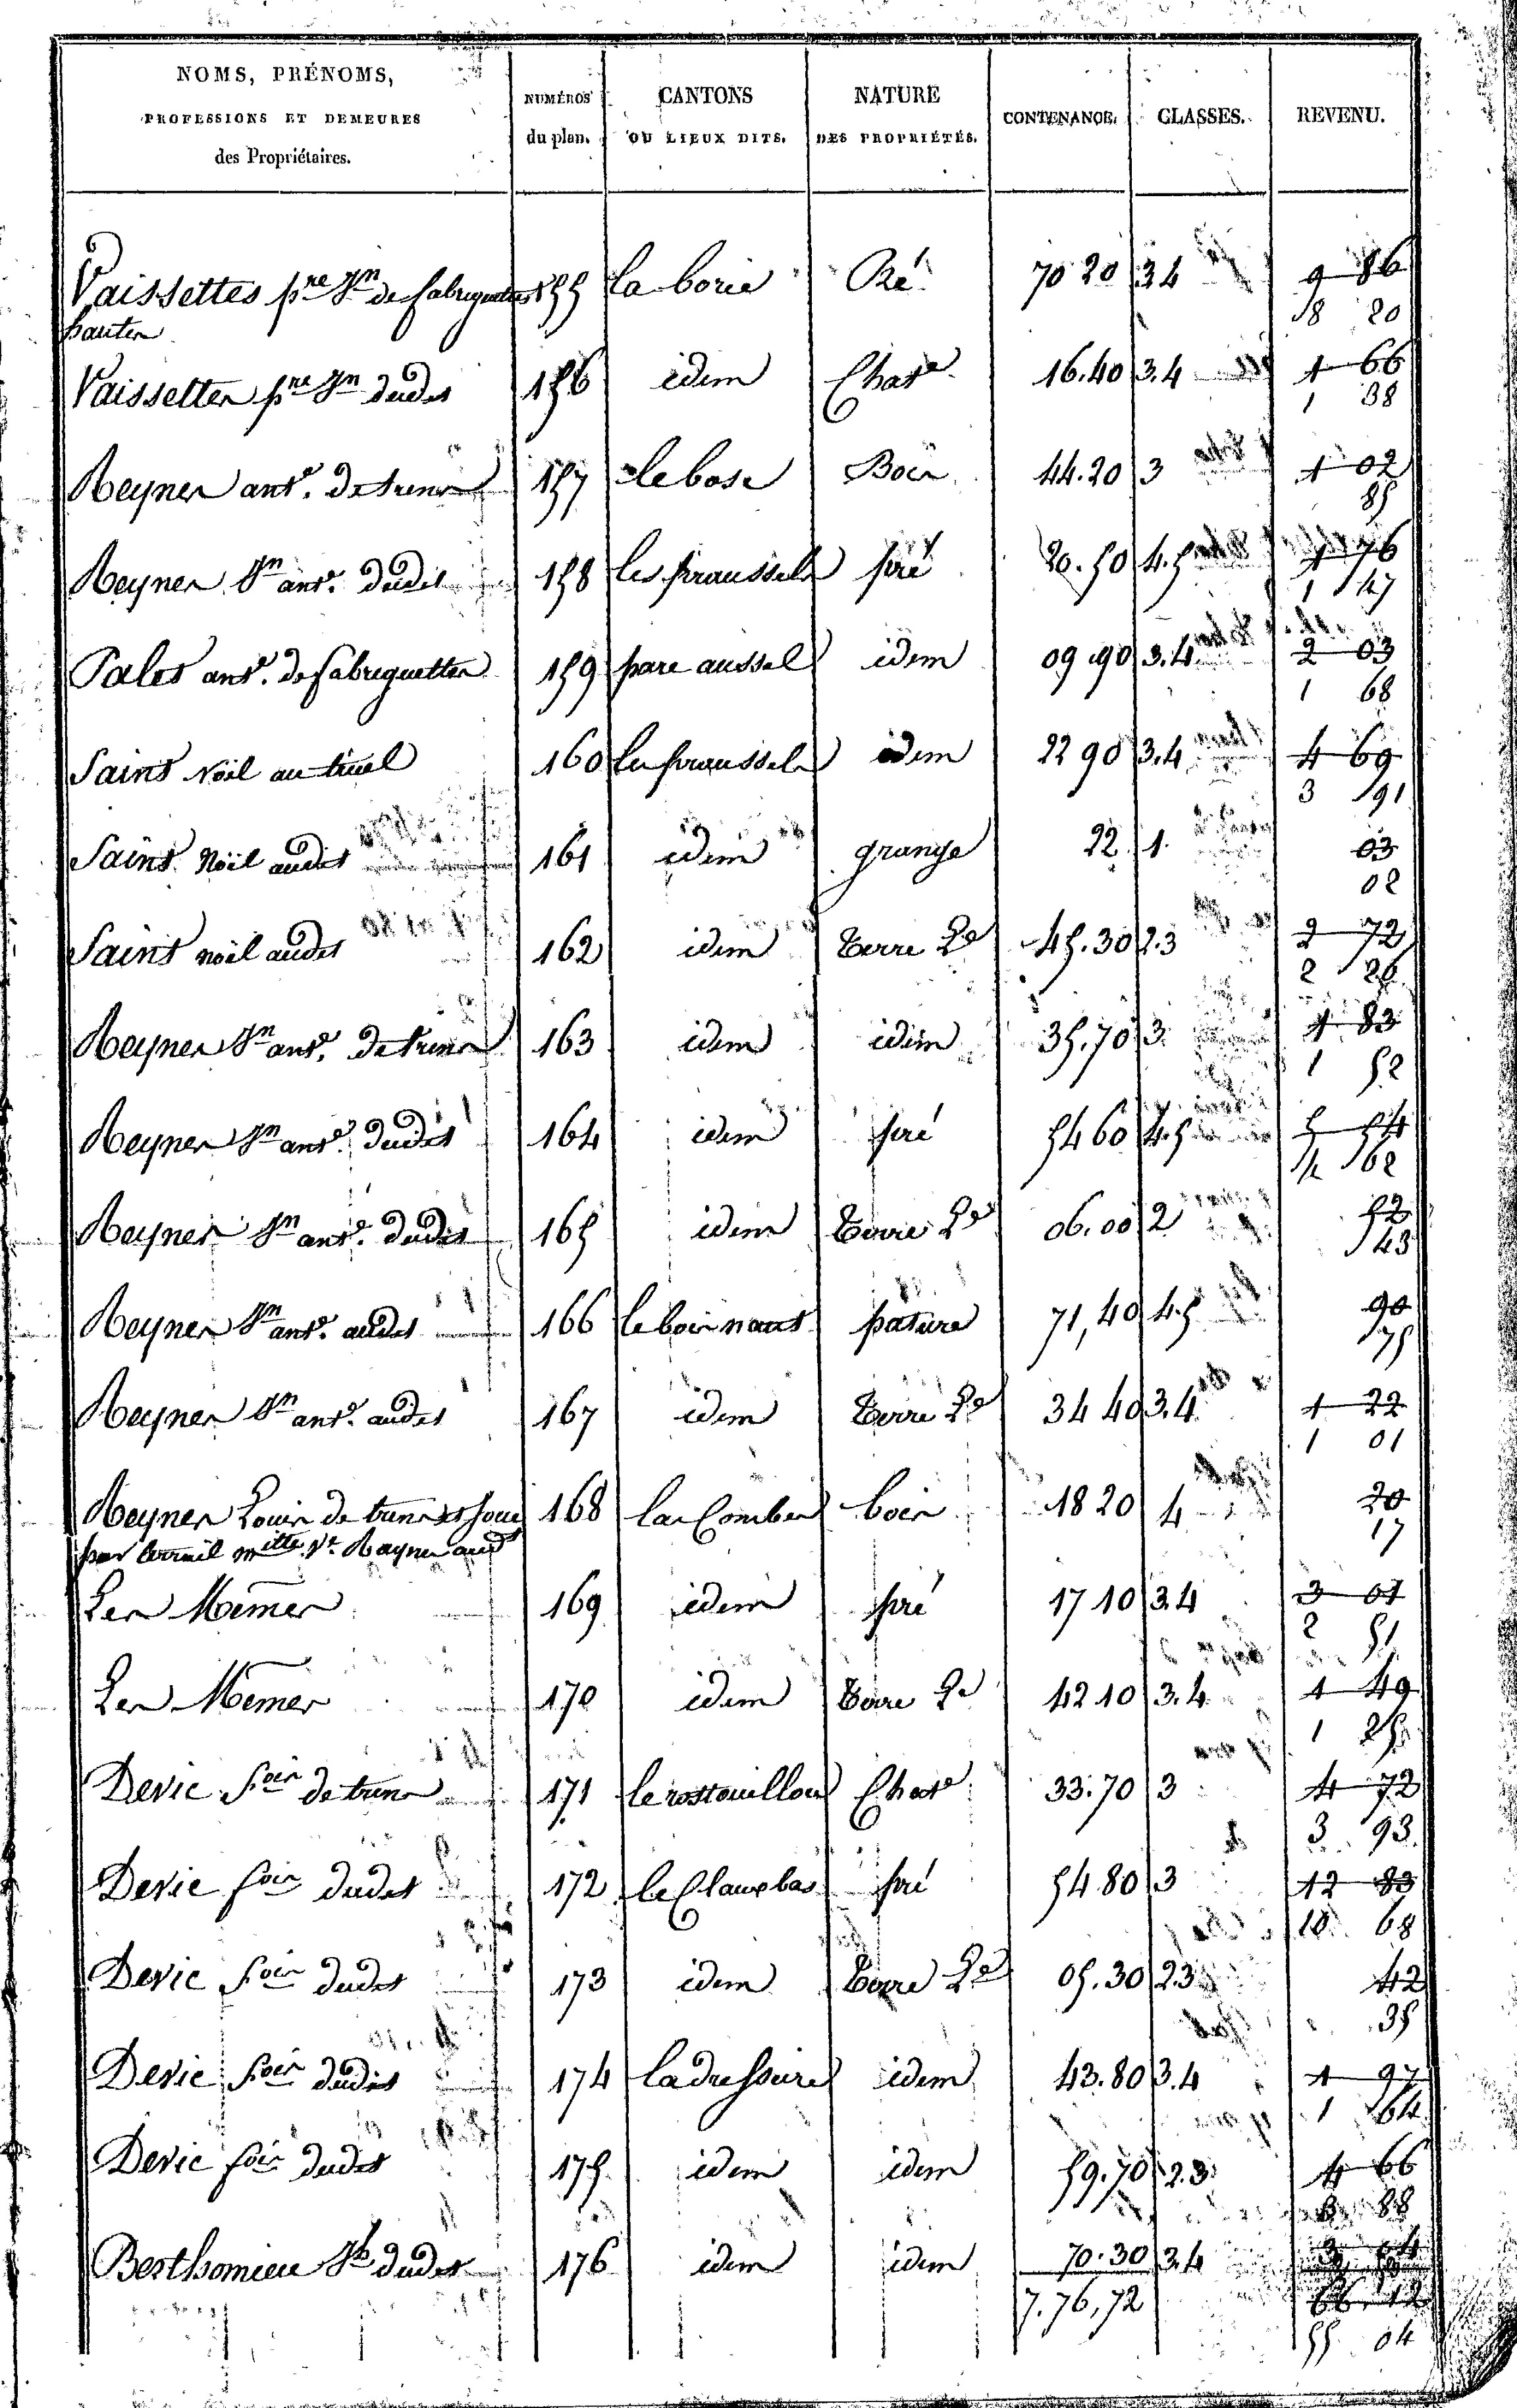 NOMS, PRÉNOMS, PROFESSIONS ET DEMEURES des Propriétaires. NUMÉROS du plan. CANTONS OU LIEUX DITS. NATURE DES PROPRIÉTÉS. CONTENANCE. CLASSES. REVENU.
Vaissettes pre Jn de fabreguettes 155 la borie Pré 70 20 3 4 9 86
hautes 8 20
Vaissettes pre Jn dudit 156 idem Chate 16.40 3.4 1 66
1 38
Reynes ante. de truns 157 le bosc Bois 44.20 3 1 02
85
Reynes Jn ante. dudit 158 les praussels pré 20.50 4.5 1 76
1 47
Pales ante. de fabreguettes 159 parc aussel idem 09.90 3.4 2 03
1 68
Sains Noël au truel 160 les praussels idem 22 90 3.4 4 69
3 91
Sains Noël audit 161 idem grange 22 1. 03
02
Sains noël audit 162 idem Terre Le 45.30 2.3 2 72
2 26
Reynes Jn ante. de truns 163 idem idem 35.70 3 1 83
1 52
Reynes Jn ante. dudit 164 idem pré 54 60 4.5 5 54
4 62
Reynes Jn ante. dudit 165 idem Terre Le 06.00 2 52
43
Reynes Jn ante. audit 166 le bois naut pature 71,40 4.5 90
75
Reynes Jn ante. audit 167 idem Terre Le 34 40 3.4 1 22
1 01
Reynes Louis de truns et joui 168 las Combes bois 18 20 4 20
par mitte Ve. Reynes audt 17
Les Mêmes 169 idem pré 17 10 3.4 3 01
2 51
Les Mêmes 170 idem Terre Le 42 10 3.4 1 49
1 25
Devic fois de truns 171 le rostouillou Chate 33.70 3 4 72
3 93
Devic fois dudit 172 le Claux bas pré 54 80 3 12 83
10 68
Devic fois dudit 173 idem Terre Le 05.30 2 3 42
35
Devic fois dudit 174 la dressure idem 43.80 3.4 1 97
1 64
Devic fois dudit 175 idem idem 59.70 2.3 4 66
3 88
Berthomieu Jh dudit 176 idem idem 70.30 3.4 3 04
7.76,72 66 12
55 04